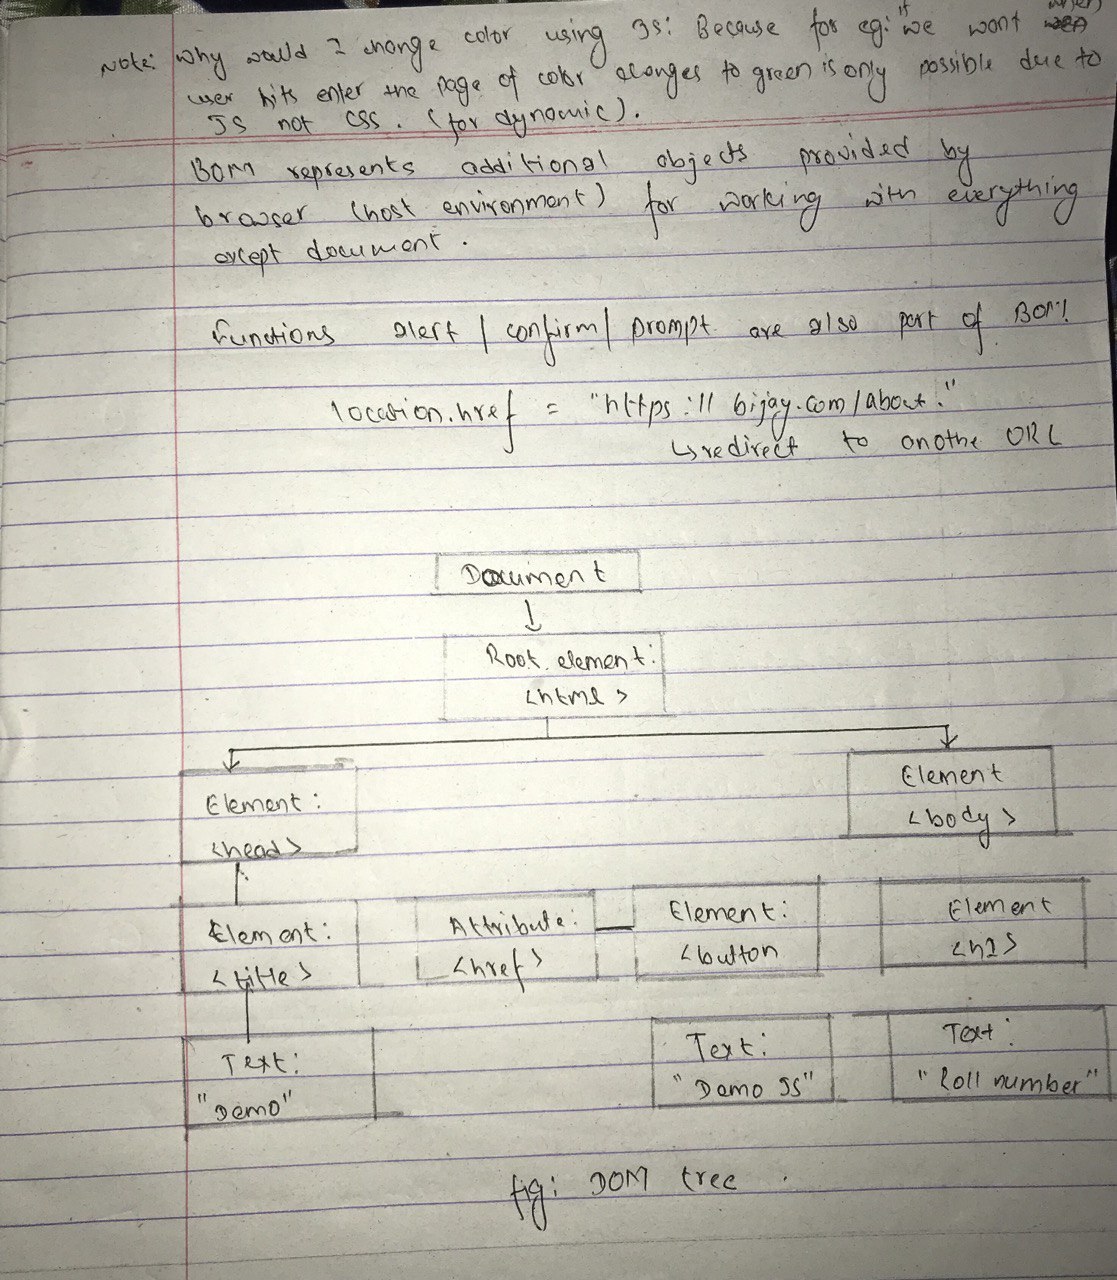 Note: Why would I change color using JS: Because for eg: if we want when
user hits enter the page of color changes to green is only possible due to
JS not CSS. (for dynamic).
BOM represents additional objects provided by
browser (host environment) for working with everything
except document.
Functions alert / confirm / prompt are also part of BOM!
location.href = "https://bijay.com/about."
↳ redirect to anothe URL
Document
Root element:
<html>
Element:
<head>
Element
<body>
Element:
<title>
Attribute:
<href>
Element:
<button
Element
<h1>
Text:
"Demo"
Text:
"Demo JS"
Text:
"Roll number"
fig: DOM tree